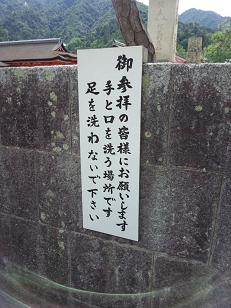 御参拝の皆様にお願いします
手と口を洗う場所です
足を洗わないで下さい